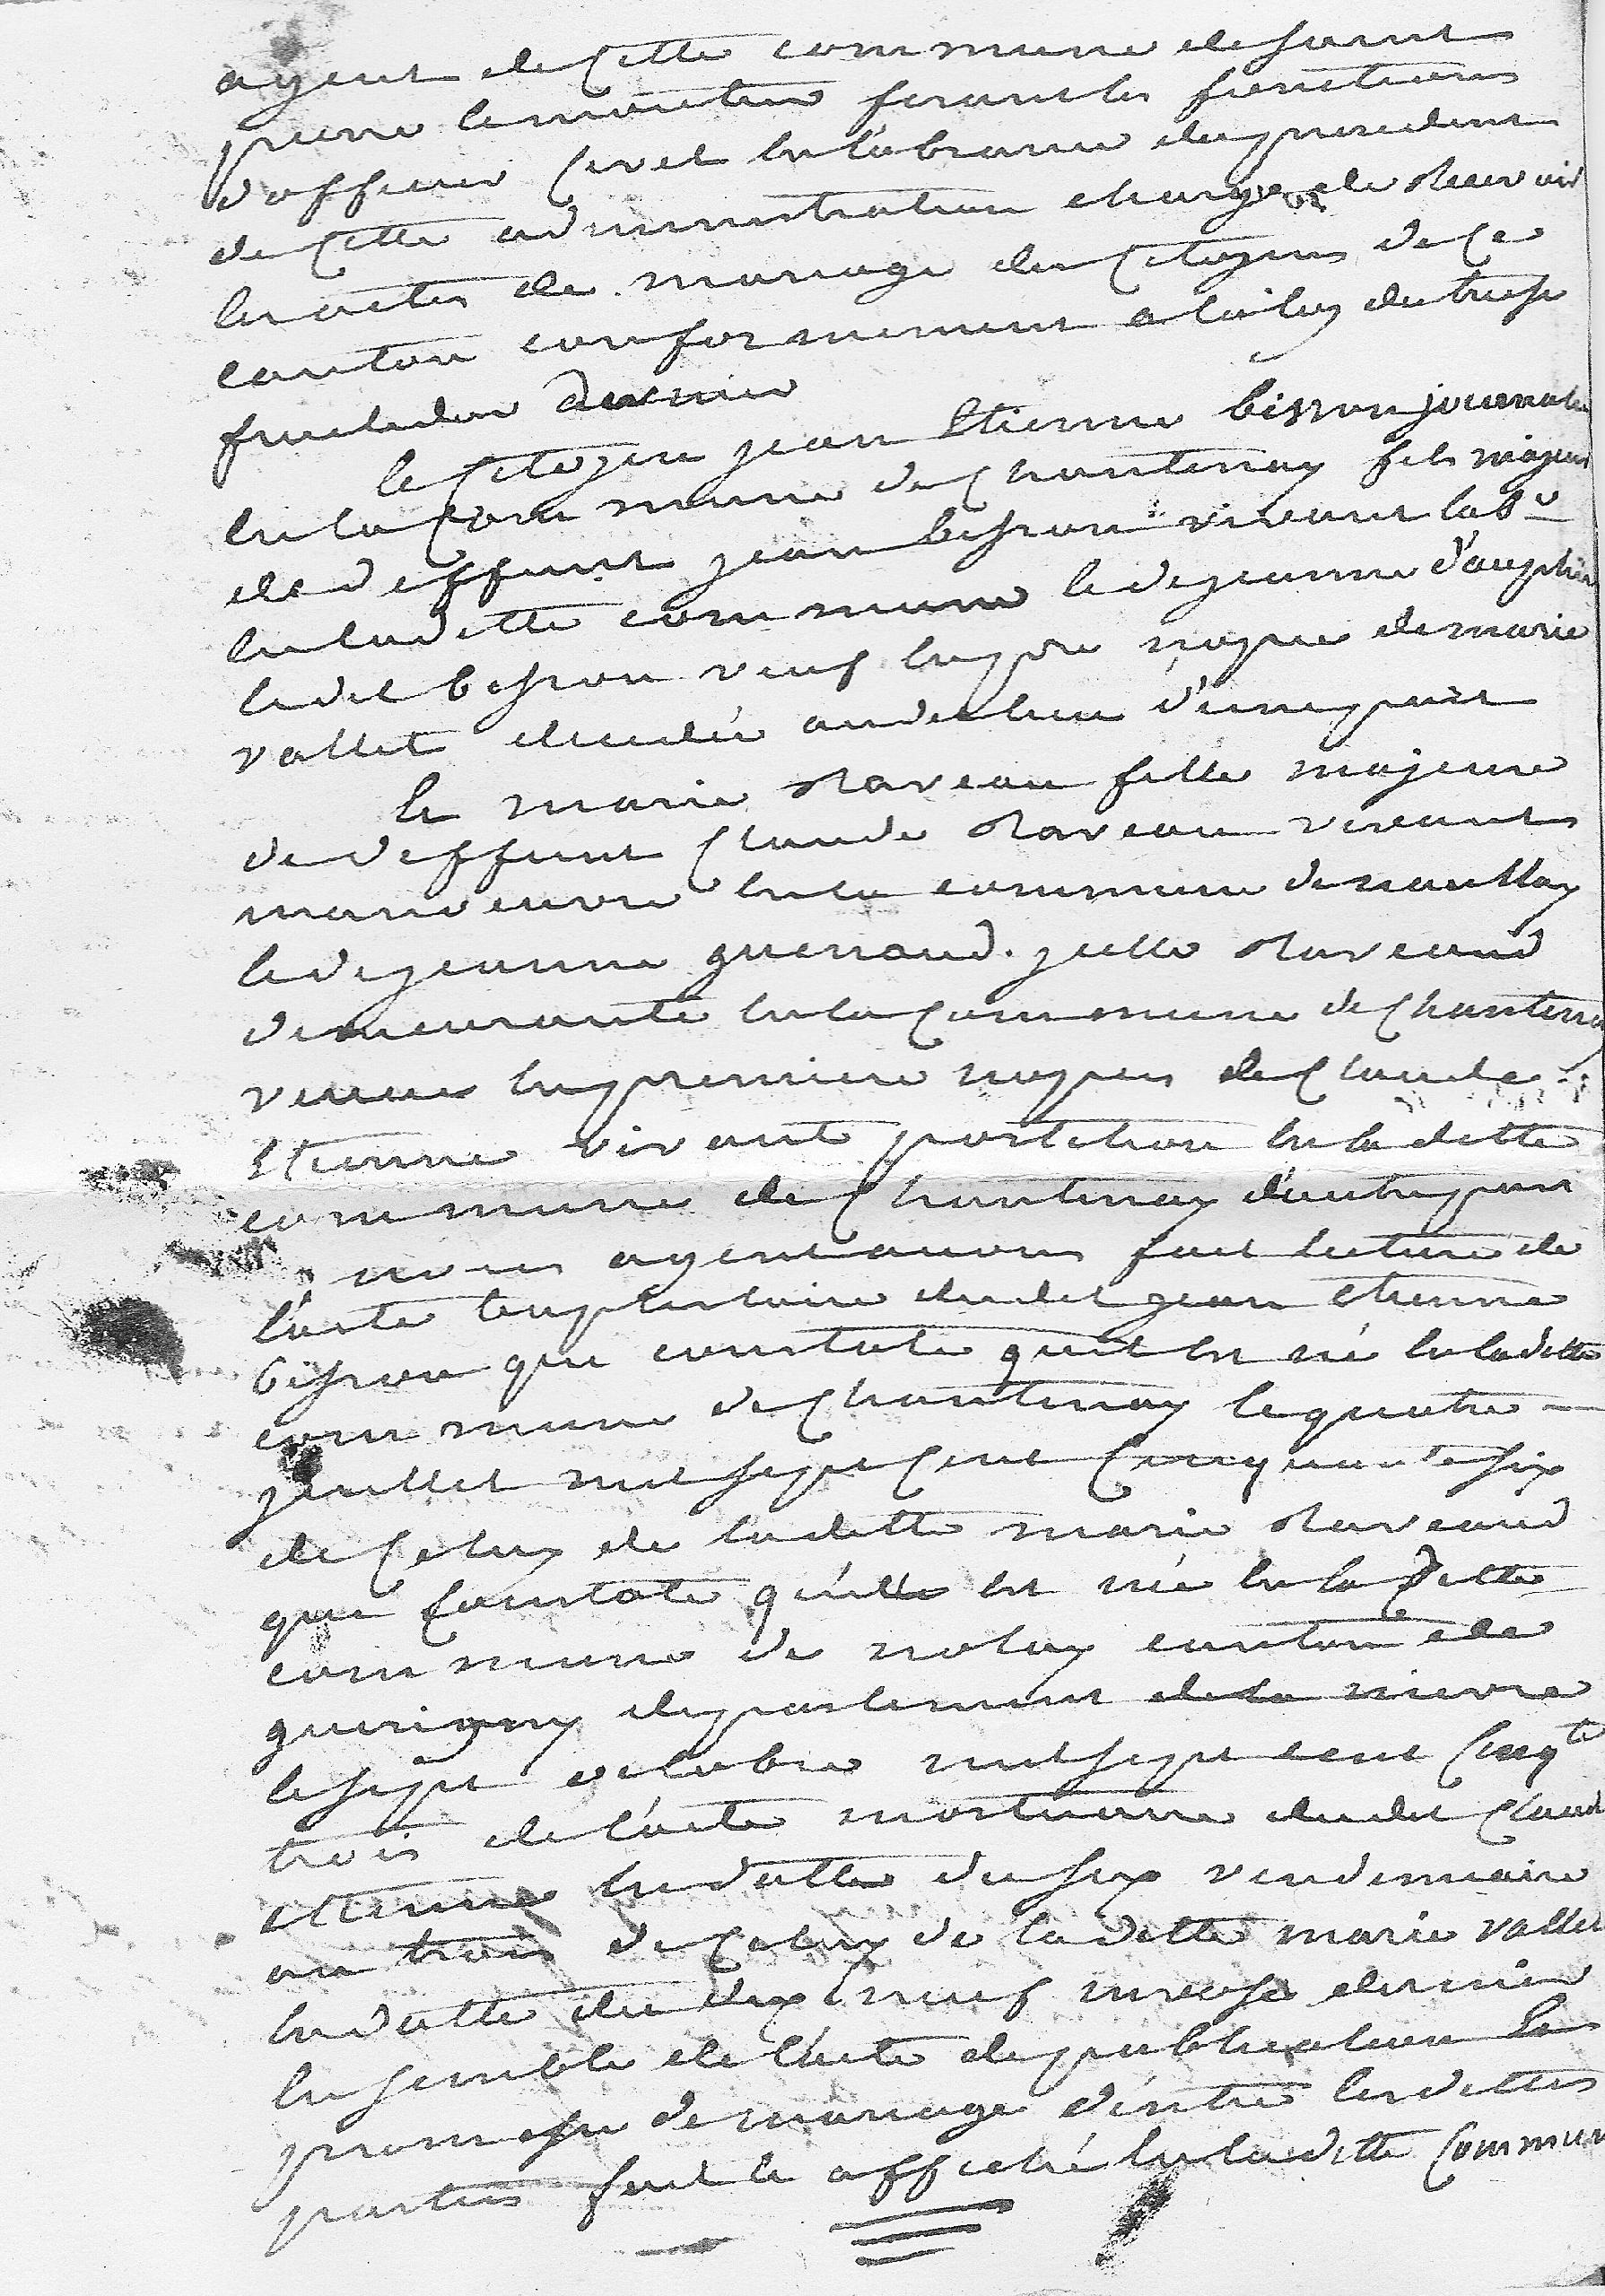 agent de Cette commune de saint
pierre le moutier faisant les fonctions
d'officier Civil en l'absence du president
de Cette administration charge de Recevoir
les actes de mariage des Citoyens de Ce
canton conformement a la loy du treise
fructidor dernier
le Citoyen jean Etienne bisson journalier
en la Commune de Chantenay fils majeur
de deffunt jean bisson vivant lab.r
en laditte commune et de jeanne dauphin
ledit bisson veuf en p.re nopce de marie
vallet decedée audit lieu d'une part
Et marie Raveau fille majeure
de deffunt Claude Raveau vivant
manoeuvre en la commune de naullay
et de jeanne guenaud. jcelle Raveaud
demeurante en la Commune de Chantenay
veuve en premiere nopces de Claude
Etienne vivant postilion en laditte
commune de Chantenay d'autre part
nous agent avons fait lecture de
l'acte baptistaire dudit jean Etienne
bisson qui constate quil est né en laditte
commune de Chantenay le quatre
juillet mil sept Cent Cinquante six
de Celuy de laditte marie Raveaud
qui Constate qu'elle est née en laditte
commune de nolay canton de
guerigny departement de la nievre
le sept octobre mil sept cent Cinq.te
trois de l'acte mortuaire dudit Claude
etienne en datte du six vendemiaire
an trois de Celuy de laditte marie vallet
en datte du dix neuf nivose dernier
ensemble de l'acte de publication de
promesse de mariage d'entre lesdittes
parties fait et affiché en laditte Commune